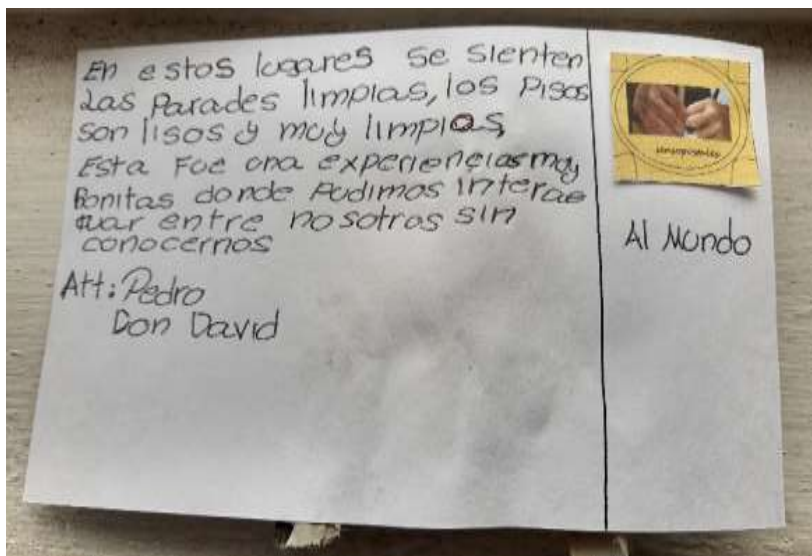 En estos lugares se sienten
Las Parades limpias, los Pisos
son lisos y muy limpios,
Esta Fue una experiencias muy
Bonitas donde Pudimos interac
tuar entre nosotros sin
conocernos
Att: Pedro
Don David
Al Mundo